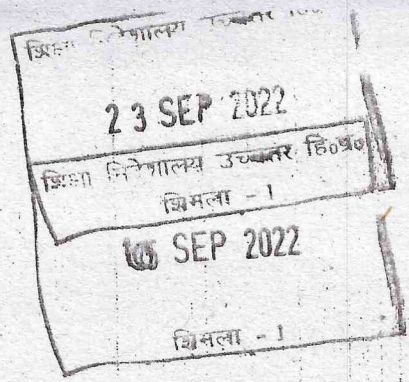 शिक्षा निदेशालय उच्चतर
23 SEP 2022
शिक्षा निदेशालय उच्चतर हि०प्र०
शिमला - 1
SEP 2022
शिमला - 1